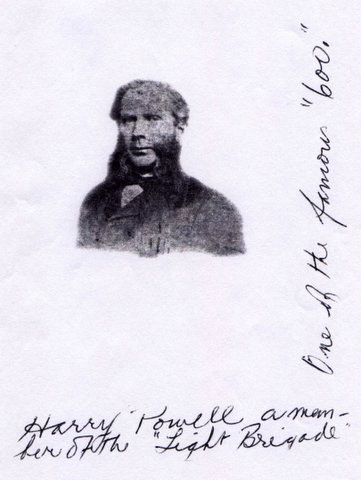 One of the famous "600."
Harry Powell a mem-
ber of the "Light Brigade"